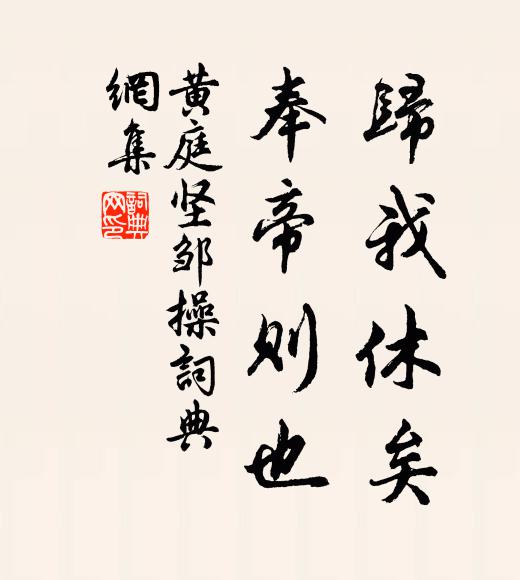 歸我休矣
奉帝則也
黄庭坚邹操詞典
網集
詞典
网印